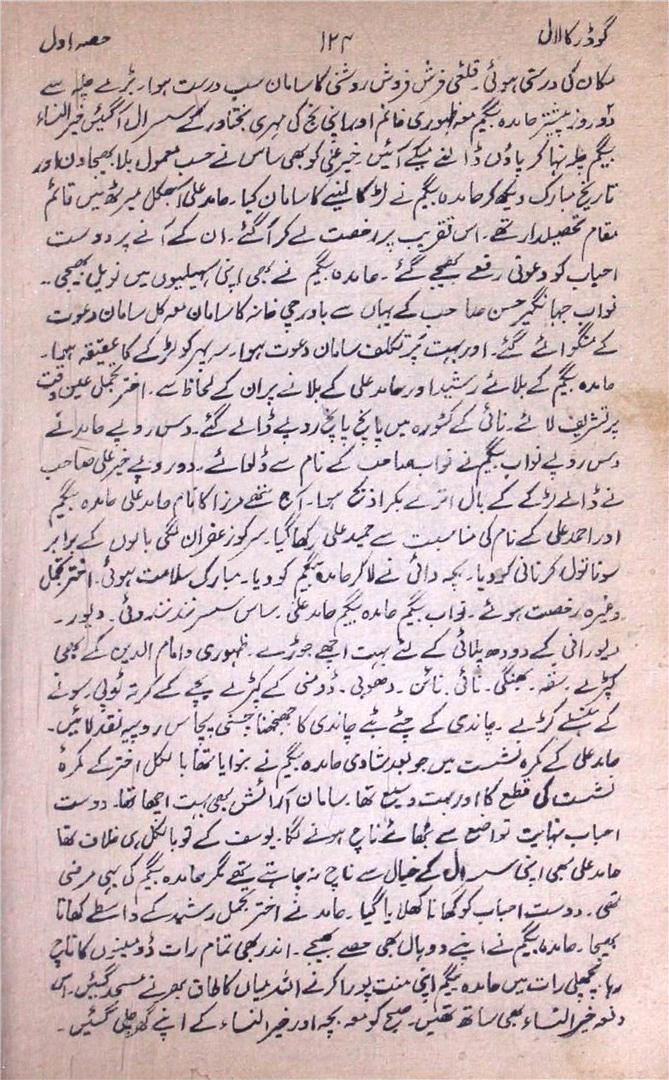 گوڈر کا لال ۱۲۴ حصہ اول
مکان کی درستی ہوئی۔ قلعی فرش فروش روشنی کا سامان سب درست ہوا۔ بڑے چلہ سے
دو روز پیشتر حامدہ بیگم معہ ظہوری خانم اور اپنی کی مہری بختاور کے سسرال آگئیں خیر النساء
بیگم چلہ نہا کر پاؤں ڈالنے میکے آئیں۔ خیر علی کو بھی ساس نے حسب معمول بلا بھیجا دن اور
تاریخ مبارک دیکھ کر حامدہ بیگم نے لڑکا لینے کا سامان کیا۔ حامد علی آجکل میرٹھ میں قائم
مقام تحصیلدار تھے۔ اس تقریب پر رخصت لے کر آگئے۔ ان کے آنے پر دوست
احباب کو دعوتی رقعے بھیجے گئے۔ حامدہ بیگم نے بھی اپنی سہیلیوں میں نویل بھیجی۔
نواب جہانگیر حسن صاحب کے یہاں سے باورچی خانہ کا سامان معہ کل سامان دعوت
کے منگوائے گئے۔ اور بہت پر تکلف سامان دعوت ہوا۔ سہ پہر کو لڑکے کا عقیقہ ہوا۔
حامدہ بیگم کے بلائے رشید اور حامد علی کے بلانے پر ان کے لحاظ سے۔ اختر تجمل عین وقت
پر تشریف لائے۔ نائی کے کٹورہ میں پانچ پانچ روپے ڈالے گئے۔ دس روپے حامد نے
دس روپے نواب بیگم نے نواب صاحب کے نام سے ڈلوائے۔ دو روپے خیر علی صاحب
نے ڈالے لڑکے کے بال اترے بکرا ذبح ہوا۔ آج ننھے مرزا کا نام حامد علی حامدہ بیگم
اور احمد علی کے نام کی مناسبت سے حمید علی رکھا گیا۔ سر کو زعفران لگی بالوں کے برابر
سونا تول کر نائی کو دیا۔ بچہ دائی نے لا کر حامدہ بیگم کو دیا۔ مبارک سلامت ہوئی۔ اختر تجمل
وغیرہ رخصت ہوئے۔ نواب بیگم حامدہ بیگم حامد علی۔ ساس سسر نند نندوئی۔ دیور۔
دیورانی کے دودھ پلائی کے لئے بہت اچھے جوڑے۔ ظہوری و امام الدین کے بھی
کپڑے۔ سقہ۔ بھنگی۔ نائی۔ نائن۔ دھوبی۔ ڈومنی کے کپڑے بچے کے کرتہ ٹوپی۔ سونے
کے ہنسلے کڑے۔ چاندی کے چٹے بٹے چاندی کا جھنجھنا چسنی پچاس روپیہ نقد لائیں۔
حامد علی کے کمرہ نشست میں جو بعد شادی حامدہ بیگم نے بنوایا تھا بالکل اختر کے کمرۂ
نشست کی قطع کا اور بہت وسیع تھا۔ سامان آرائش بھی بہت اچھا تھا۔ دوست
احباب نہایت تواضع سے بٹھائے ناچ ہونے لگا۔ یوسف کے تو بالکل ہی خلاف تھا
حامد علی بھی اپنی سسرال کے خیال سے ناچ نہ چاہتے تھے مگر حامدہ بیگم کی یہی مرضی
تھی۔ دوست احباب کو کھانا کھلایا گیا۔ حامد نے اختر تجمل رشید کے واسطے کھانا
بھیجا۔ حامدہ بیگم نے اپنے دوہال بھی حصے بھیجے۔ اندر بھی تمام رات ڈومینوں کا ناچ
رہا۔ پچھلی رات میں حامدہ بیگم اپنی منت پورا کرنے اللہ میاں کا طاق بھرنے مسجد گئیں۔ اس
دفعہ خیر النساء بھی ساتھ تھیں۔ صبح کو معہ بچہ اور خیر النساء کے اپنے گھر چلی گئیں۔